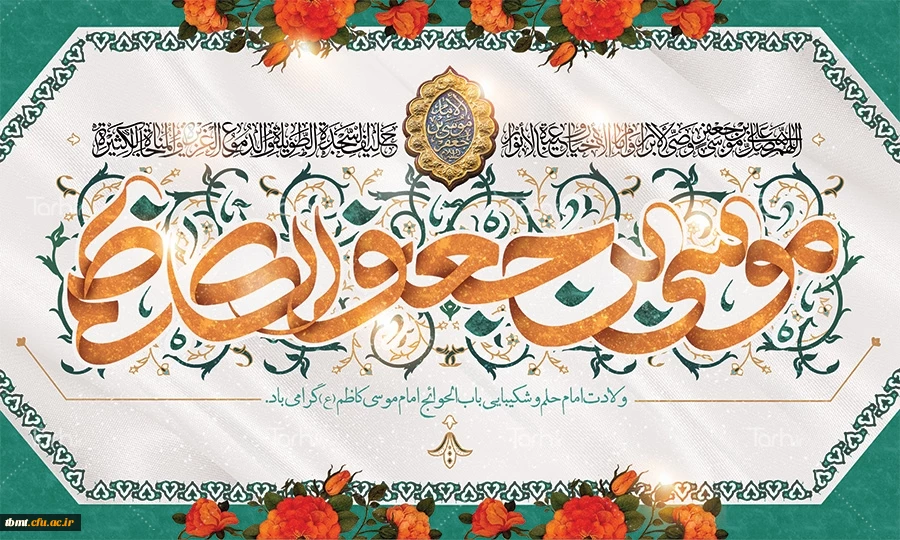 اللهم صل علی موسی بن جعفر وصی الابرار و امام الاخیار و عیبة الانوار
الامام موسی بن جعفر
حلیف السجدة الطویلة و الدموع الغزیرة و المناجات الکثیرة
موسی بن جعفر الکاظم
ولادت امام حلم و شکیبایی باب الحوائج امام موسی کاظم (ع) گرامی باد.
tbmt.cfu.ac.ir